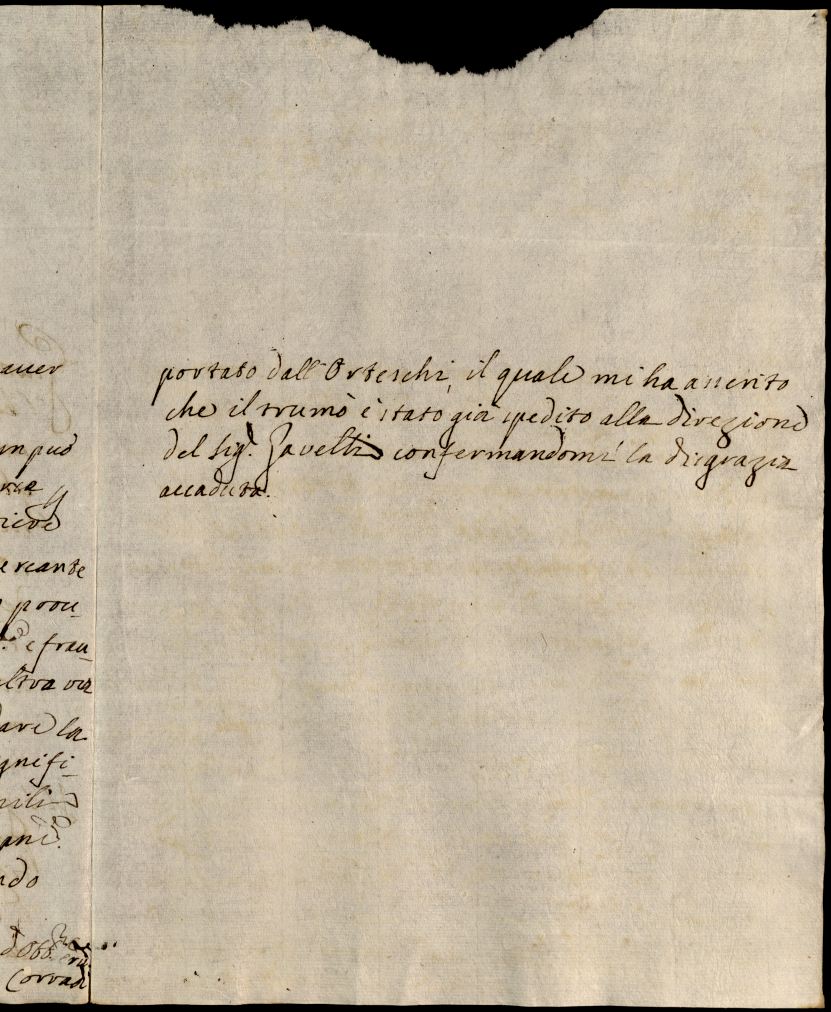 auer
un può
rieve
ercante
procu_
e frau_
altra vez
dare la
gnifi_
ndo
Corradi
portato dall'Orteschi, il quale mi ha asserito
che il trumò è stato già spedito alla direzione
del Sig.r Zavelli confermandomi la disgrazia
accaduta.